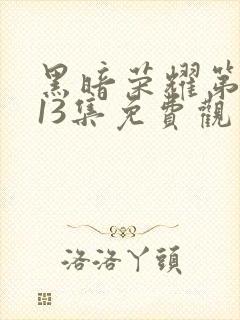 黑暗荣耀第
13集免費觀
洛洛丫頭